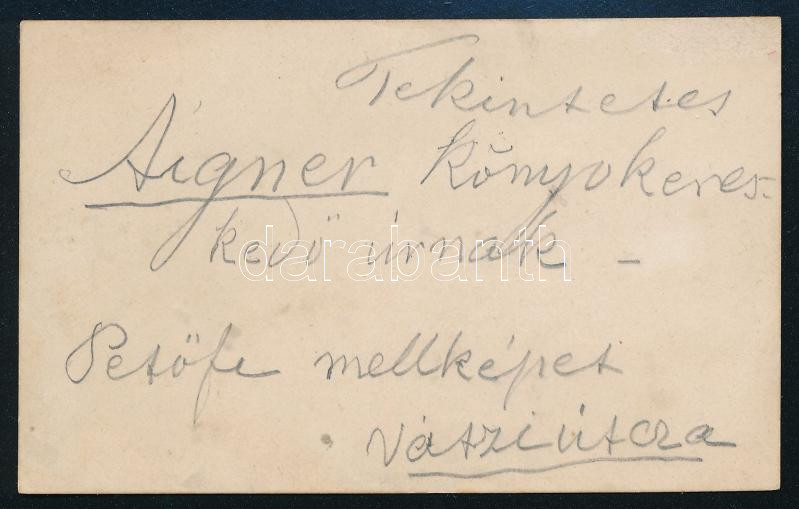 Tekintetes
Aigner Könyvkeres-
kedő úrnak –
Petőfi mellképet
Vátzi útcza
darabanth